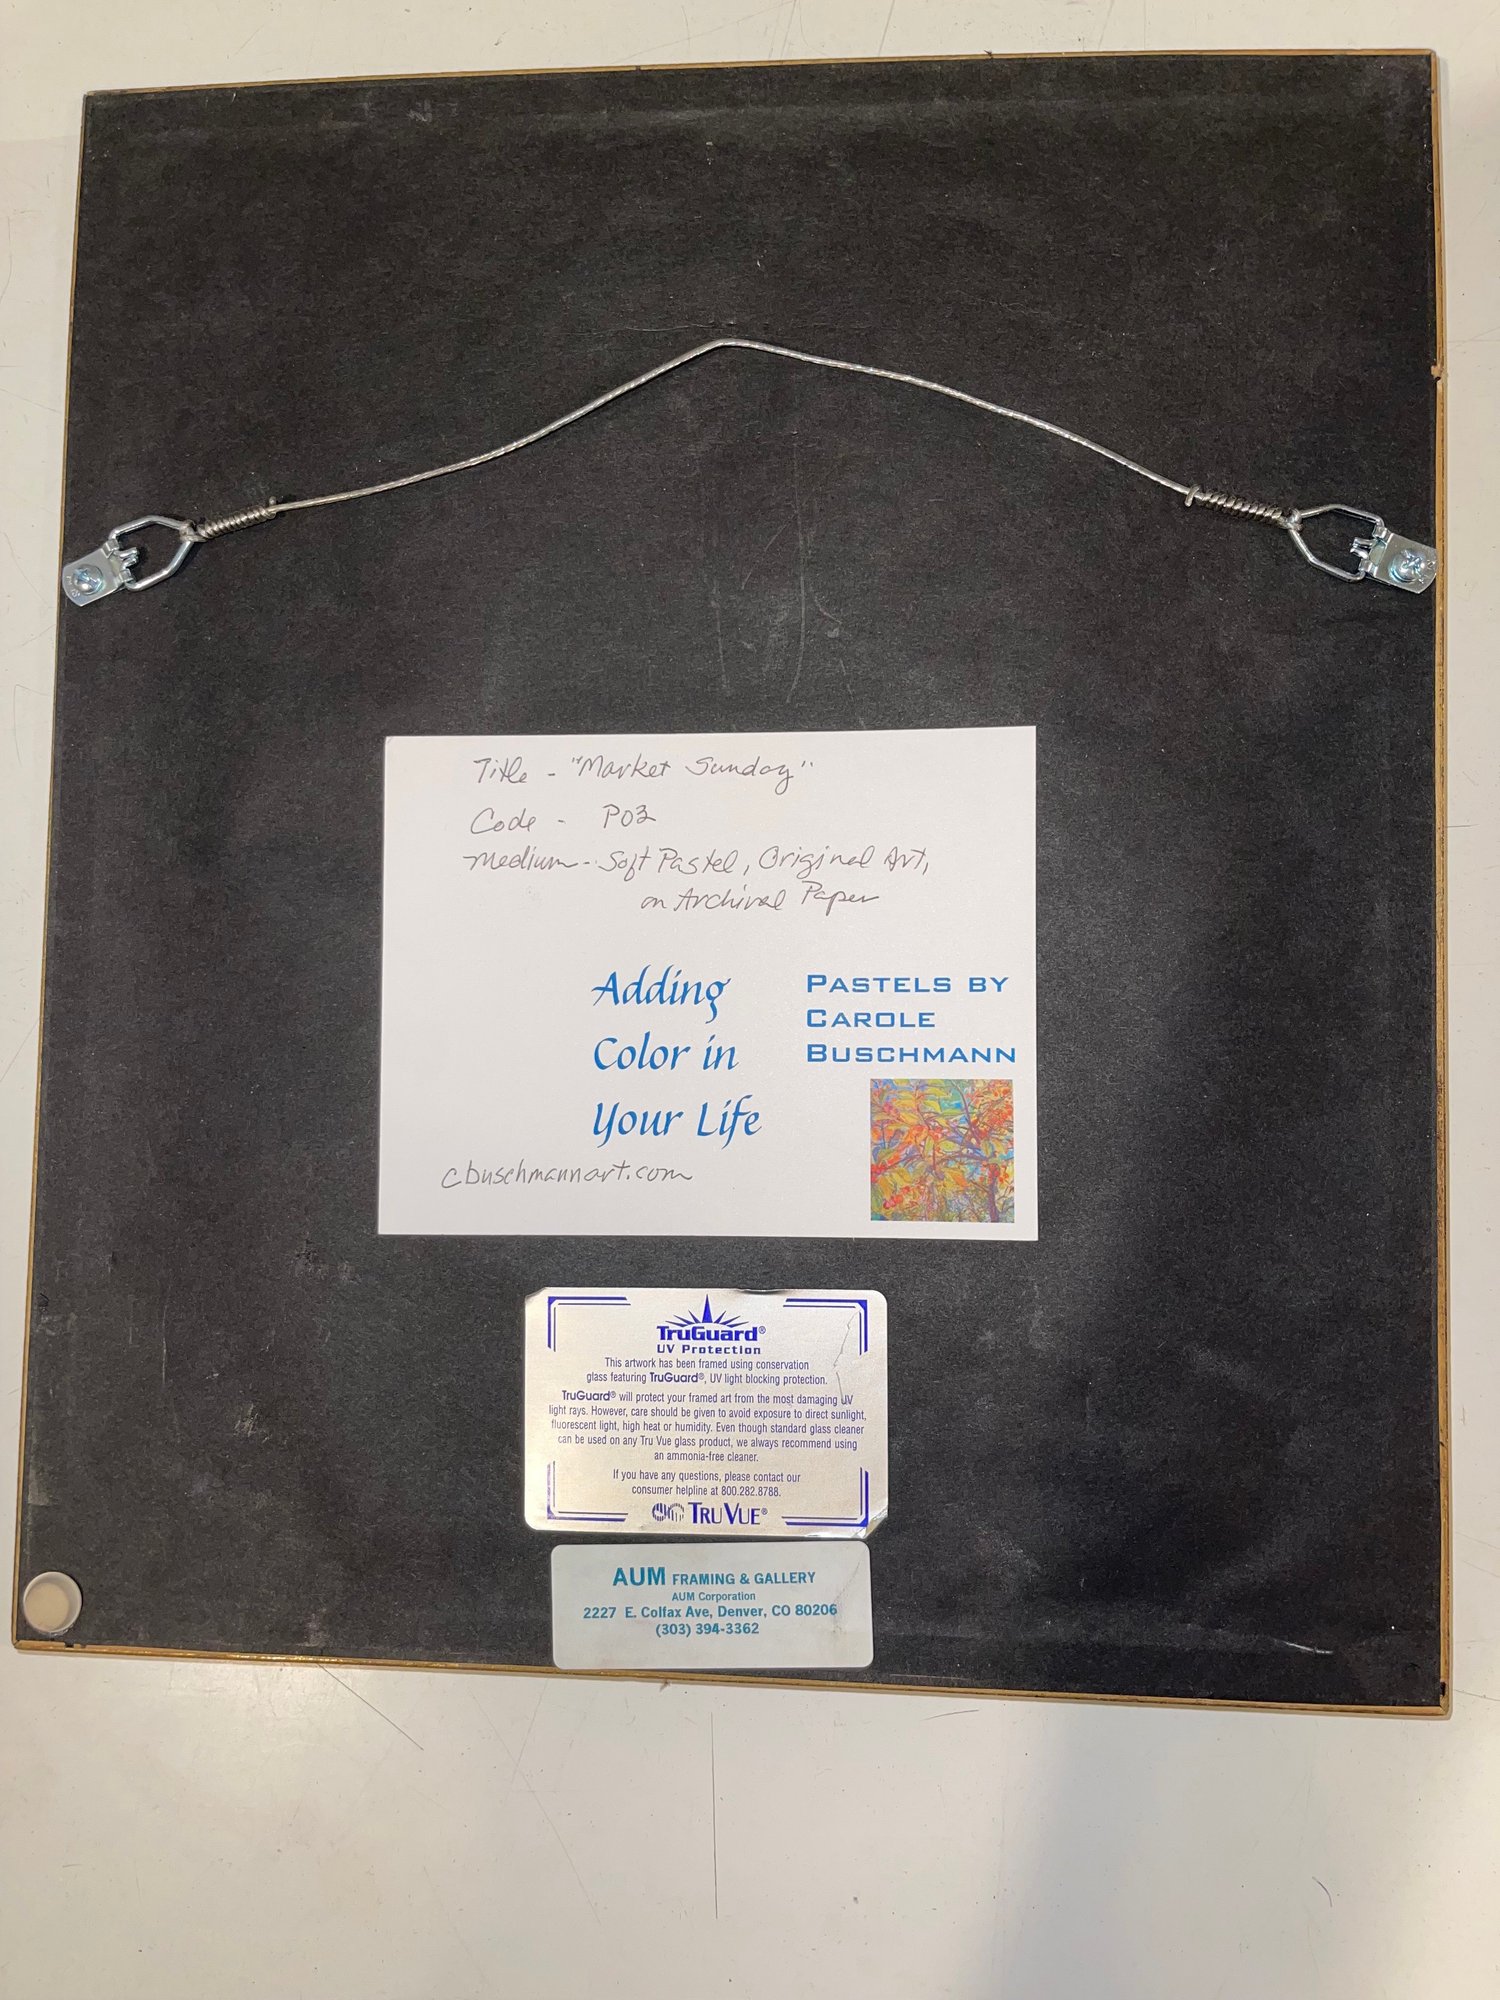 Title - "Market Sunday"
Code - P03
Medium - Soft Pastel, Original Art,
on Archival Paper
Adding
Color in
Your Life
PASTELS BY
CAROLE
BUSCHMANN
cbuschmannart.com
TruGuard®
UV Protection
This artwork has been framed using conservation
glass featuring TruGuard®, UV light blocking protection.
TruGuard® will protect your framed art from the most damaging UV
light rays. However, care should be given to avoid exposure to direct sunlight,
fluorescent light, high heat or humidity. Even though standard glass cleaner
can be used on any Tru Vue glass product, we always recommend using
an ammonia-free cleaner.
If you have any questions, please contact our
consumer helpline at 800.282.8788.
TRU VUE®
AUM FRAMING & GALLERY
AUM Corporation
2227 E. Colfax Ave, Denver, CO 80206
(303) 394-3362